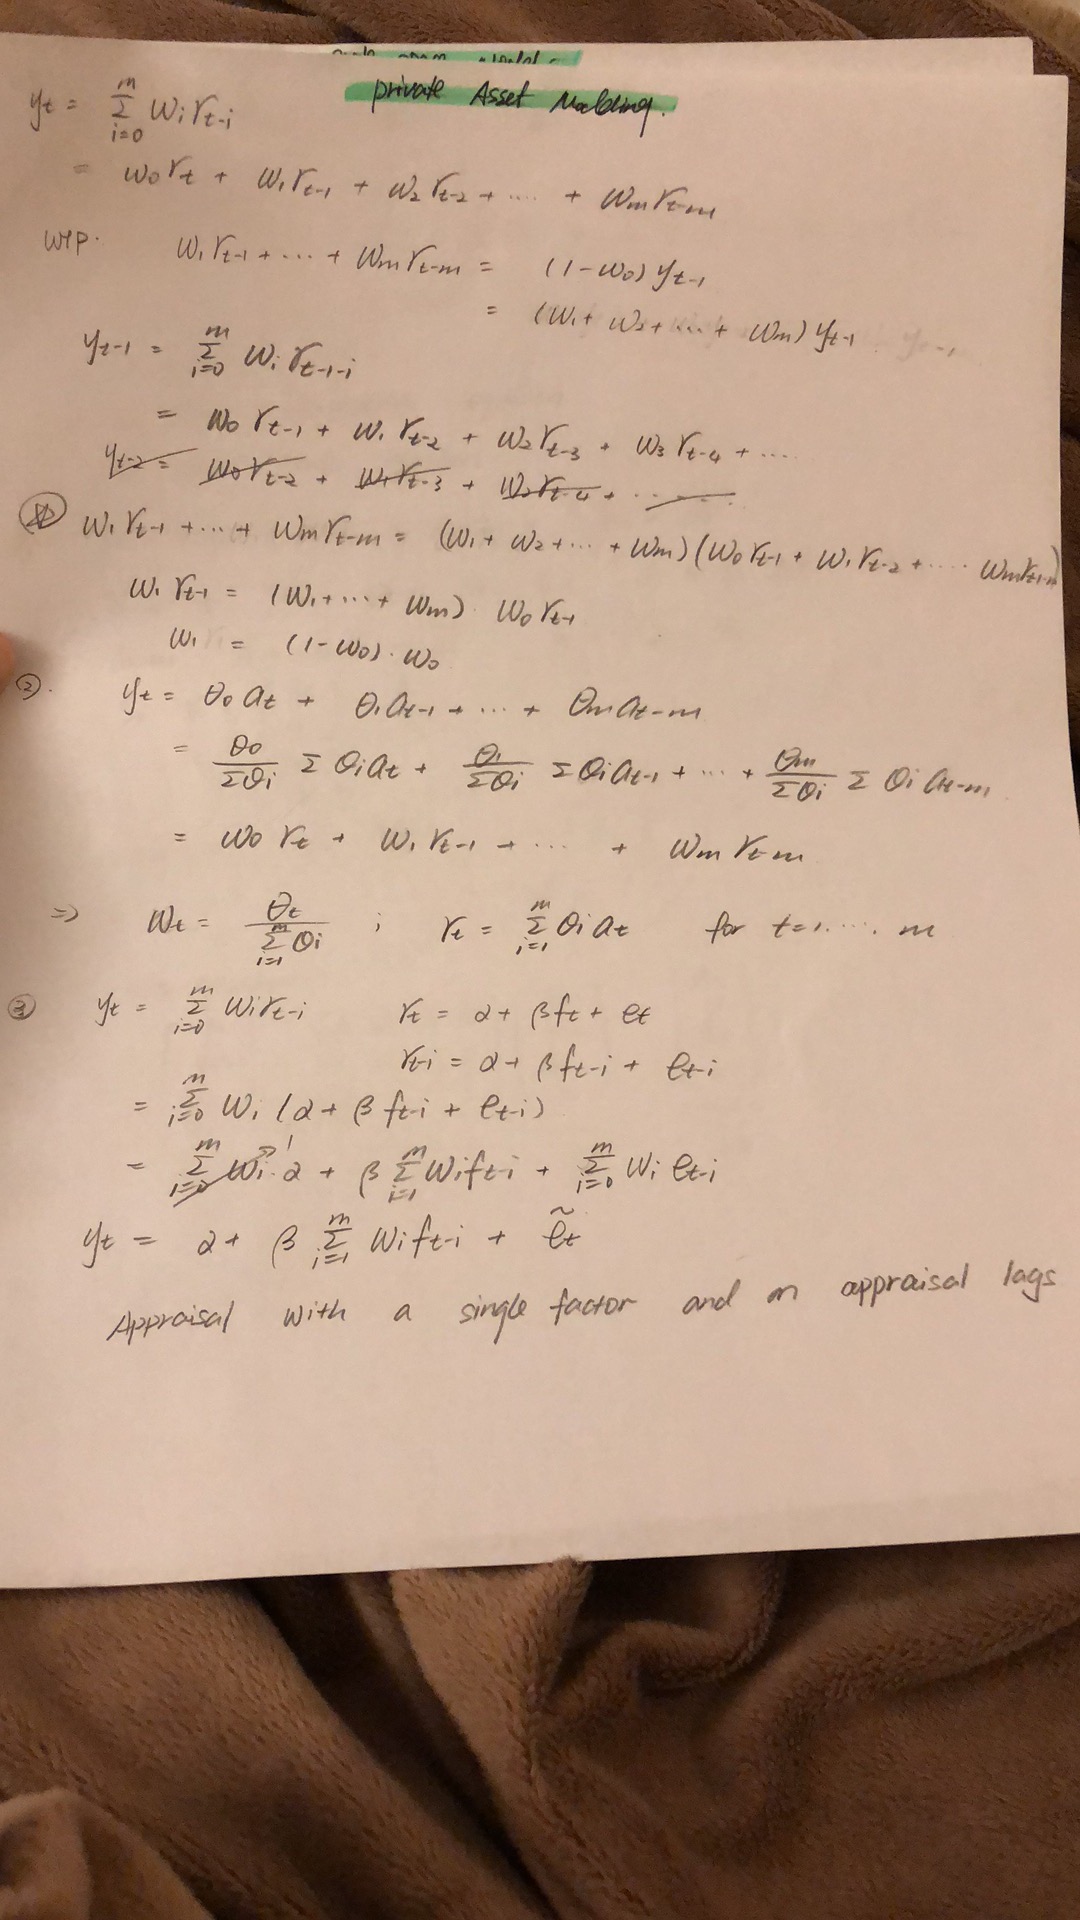 private Asset Modeling.
yt = Σ_{i=0}^{m} Wi rt-i
= w0 rt + w1 rt-1 + w2 rt-2 + ···· + wm rt-m
WTP. w1 rt-1 + ··· + wm rt-m = (1-w0) yt-1
= (w1 + w2 + ··· + wm) yt-1
yt-1 = Σ_{i=0}^{m} wi rt-1-i
= w0 rt-1 + w1 rt-2 + w2 rt-3 + w3 rt-4 + ····
yt-2 = w0 rt-2 + w1 rt-3 + w2 rt-4 + ···
w1 rt-1 + ··· + wm rt-m = (w1 + w2 + ··· + wm)(w0 rt-1 + w1 rt-2 + ···· wm rt-1-m)
w1 rt-1 = (w1 + ··· + wm) · w0 rt-1
w1 = (1-w0) · w0
②. yt = θ0 at + θ1 at-1 + ··· + θm at-m
= θ0/Σθi Σ θi at + θ1/Σθi Σ θi at-1 + ··· + θm/Σθi Σ θi at-m
= w0 rt + w1 rt-1 + ···· + wm rt-m
=> wt = θt / Σ_{i=1}^{m} θi ; rt = Σ_{i=1}^{m} θi at for t=1,····, m
③ yt = Σ_{i=0}^{m} wi rt-i rt = α + β ft + et
rt-i = α + β ft-i + et-i
= Σ_{i=0}^{m} wi (α + β ft-i + et-i)
= Σ_{i=0}^{m} wi → 1 · α + β Σ_{i=1}^{m} wi ft-i + Σ_{i=0}^{m} wi et-i
yt = α + β Σ_{i=1}^{m} wi ft-i + ẽt
Appraisal with a single factor and m appraisal lags